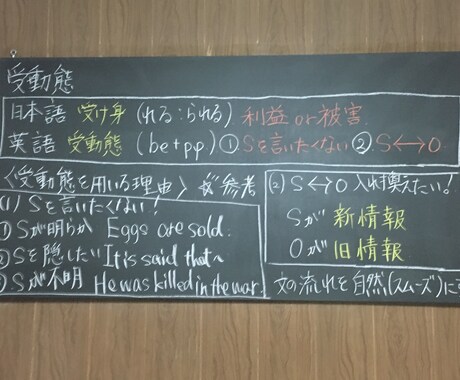 受動態
日本語 受け身 (れる:られる) 利益 or 被害
英語 受動態 (be+pp) ①Sを言いたくない ②S⟷O
〈受動態を用いる理由〉 参考
(1) Sを言いたくない!
①Sが明らか Eggs are sold.
②Sを隠したい It is said that~
③Sが不明 He was killed in the war.
(2) S⟷O 入れ換えたい!
Sが 新情報
Oが 旧情報
文の流れを自然(スムーズ)に